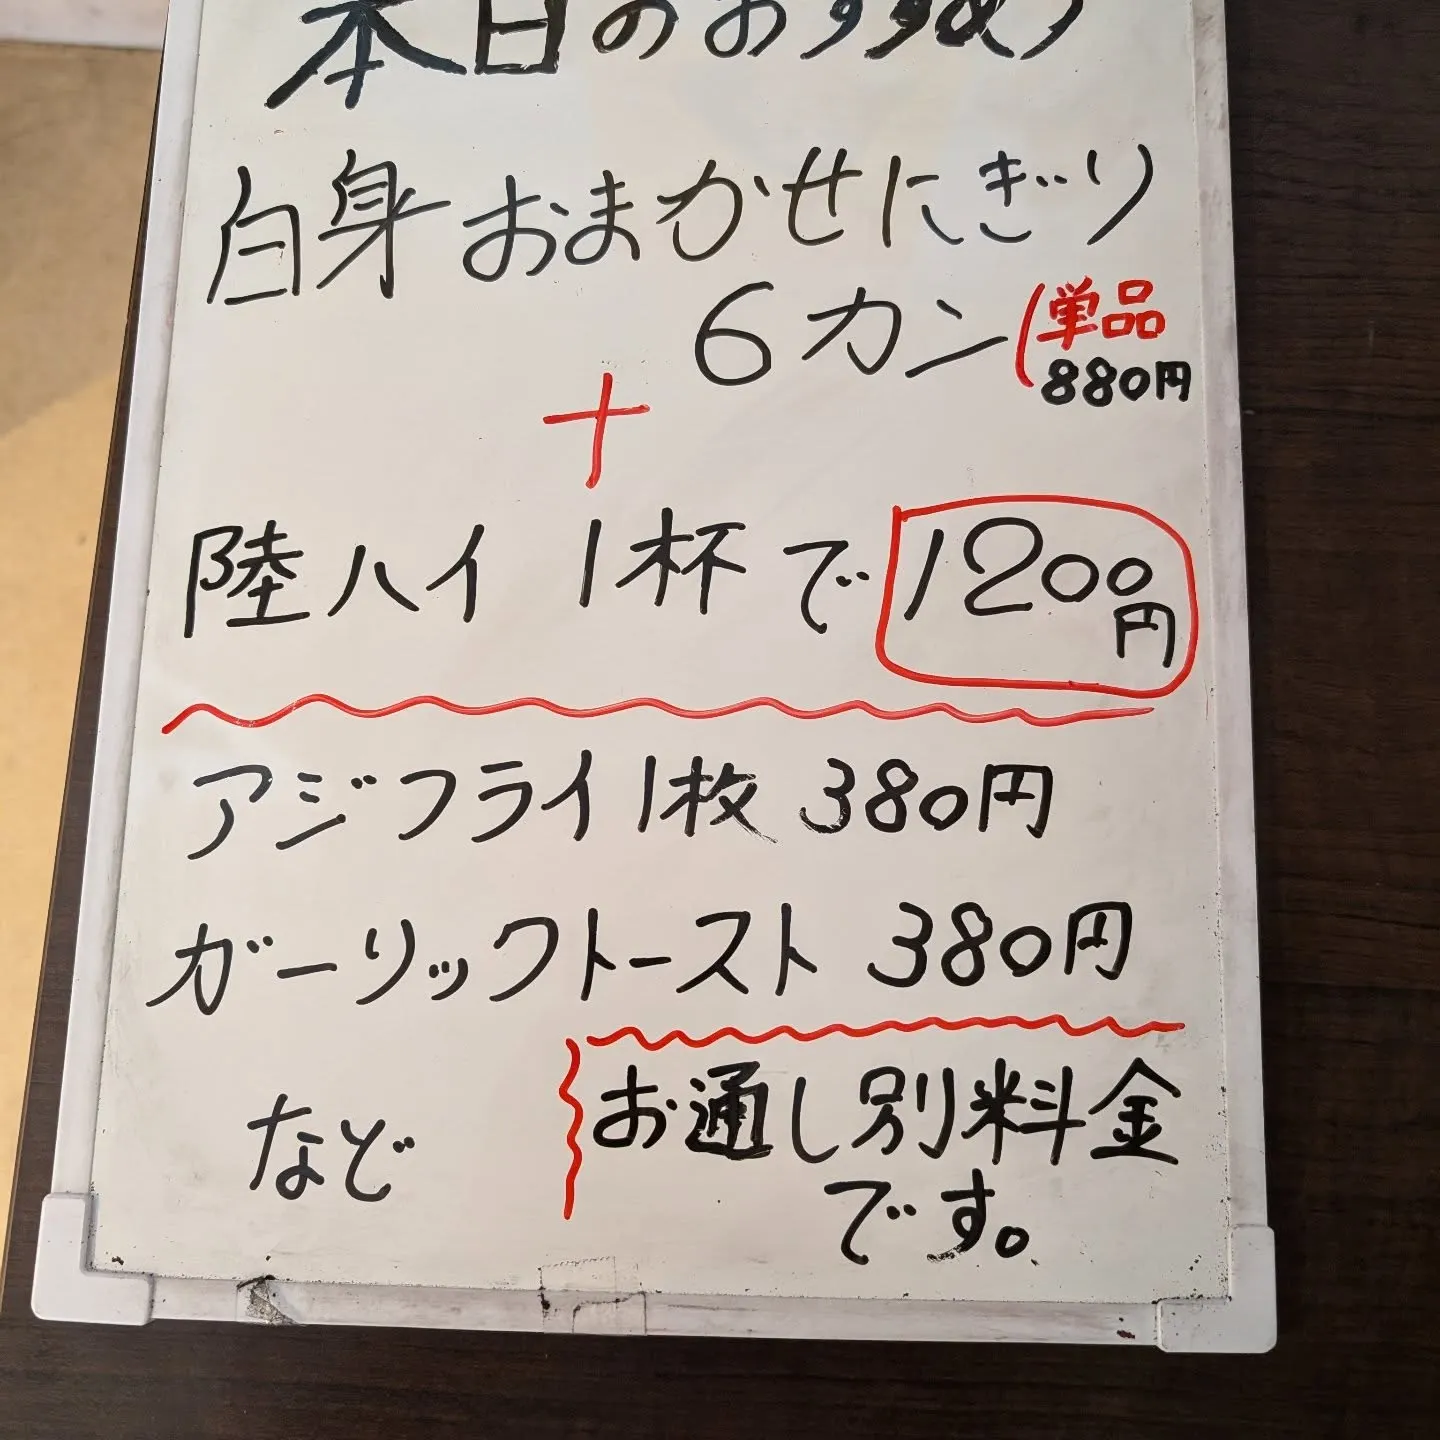 本日のおすすめ
白身おまかせにぎり
6カン(単品
880円
+
陸ハイ 1杯で1200円
アジフライ1枚 380円
ガーリックトースト 380円
など
お通し別料金
です。